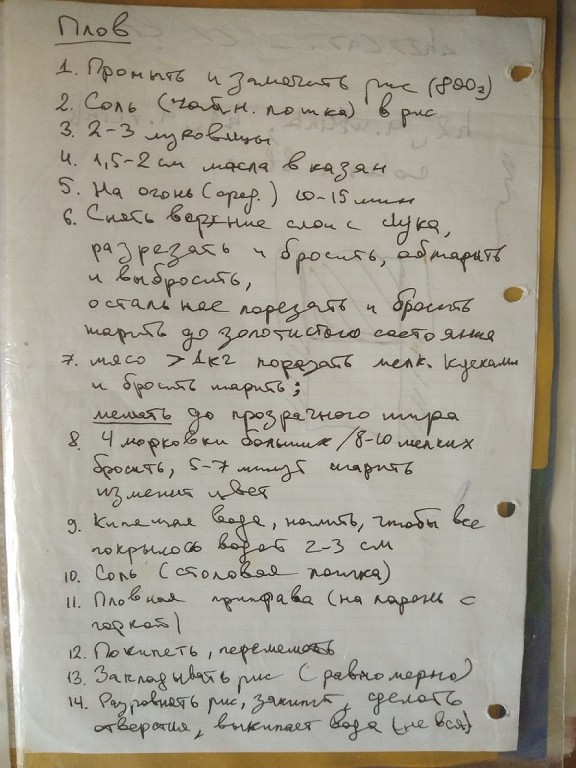 Плов
1. Промыть и замочить рис (800г)
2. Соль (чайн. ложка) в рис
3. 2-3 луковицы
4. 1,5-2 см масла в казан
5. На огонь (сред.) 10-15 мин
6. Снять верхние слои с лука,
разрезать и бросить, обжарить
и выбросить,
остальное порезать и бросить
жарить до золотистого состояния
7. мясо > 1кг порезать мелк. кусками
и бросить жарить;
мешать до прозрачного жира
8. 4 морковки больших /8-10 мелких
бросить, 5-7 минут жарить
изменит цвет
9. Кипящая вода, налить, чтобы все
покрылось водой 2-3 см
10. Соль (столовая ложка)
11. Пловная приправа (на ладонь с
горкой)
12. Покипеть, перемешать
13. Закладывать рис (равномерно)
14. Разровнять рис, закипит, сделать
отверстия, выкипает вода (не вся)